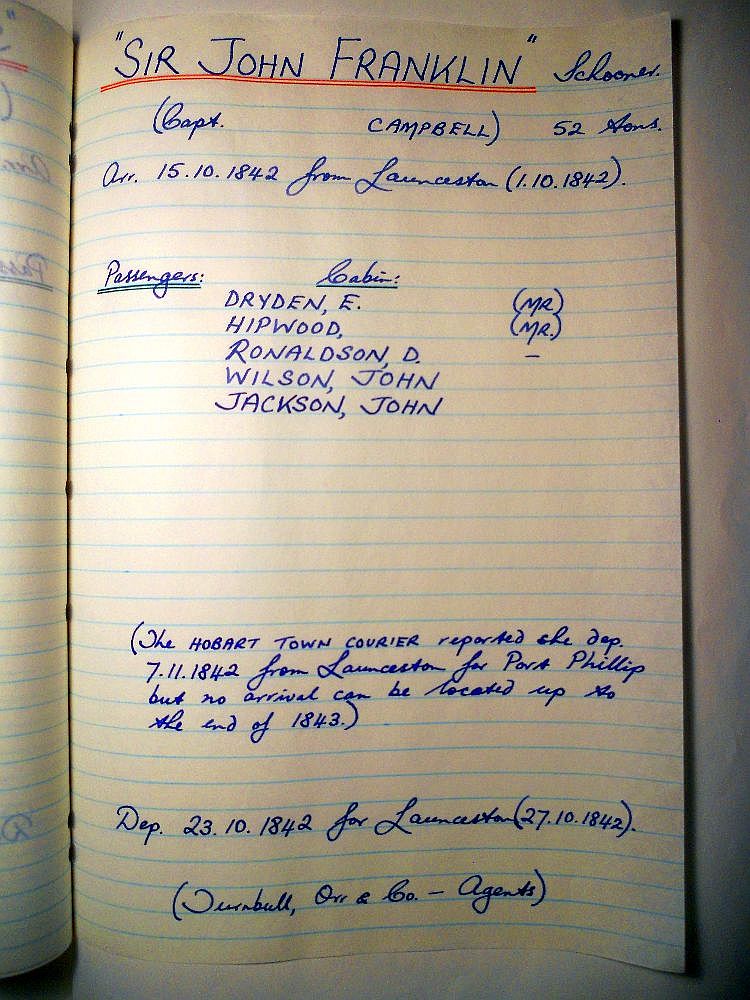 "SIR JOHN FRANKLIN" Schooner.
(Capt. CAMPBELL) 52 tons.
Arr. 15.10.1842 from Launceston (1.10.1842).
Passengers: Cabin:
DRYDEN, E. (MR)
HIPWOOD, (MR.)
RONALDSON, D. –
WILSON, JOHN
JACKSON, JOHN
(The HOBART TOWN COURIER reported she dep.
7.11.1842 from Launceston for Port Phillip
but no arrival can be located up to
the end of 1843.)
Dep. 23.10.1842 for Launceston (27.10.1842).
(Turnbull, Orr & Co. – Agents)